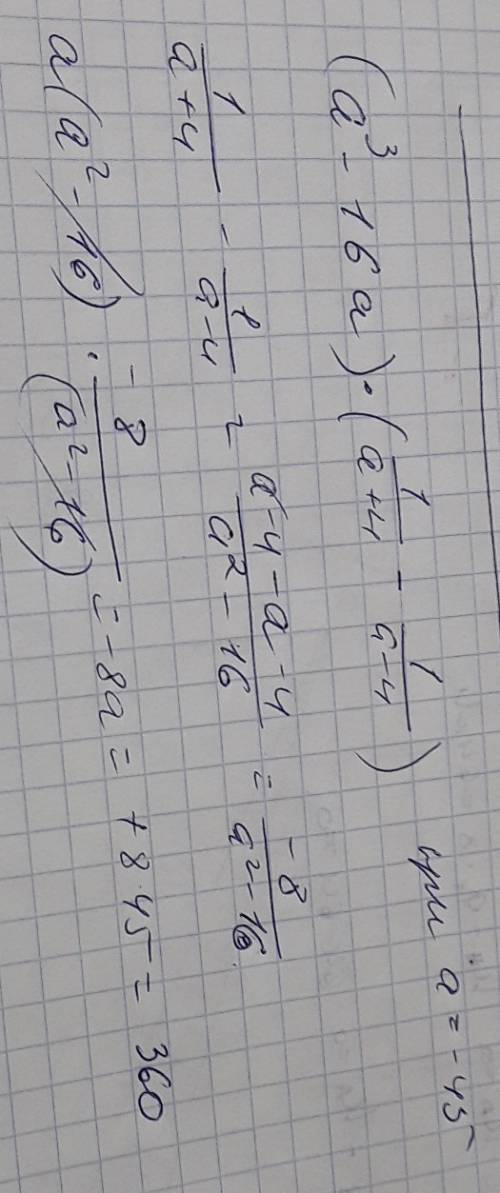 (a³ - 16a) · (1/(a+4) - 1/(a-4)) при a = -45
1/(a+4) - 1/(a-4) = (a-4-a-4)/(a²-16) = -8/(a²-16)
a(a²-16) · -8/(a²-16) = -8a = +8·45 = 360